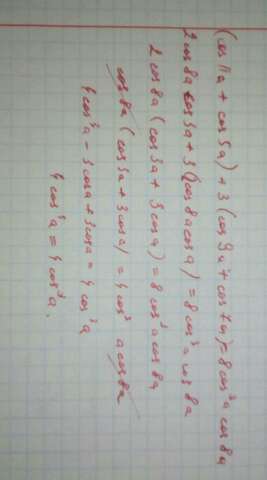 (cos 11a + cos 5a) + 3 (cos 9a + cos 7a) = 8 cos³a cos 8a
2 cos 8a cos 3a + 3 (2 cos 8a cos a) = 8 cos³a cos 8a
2 cos 8a (cos 3a + 3 cos a) = 8 cos³a cos 8a
cos 8a (cos 3a + 3 cos a) = 4 cos³a cos 8a
4 cos³a - 3 cos a + 3 cos a = 4 cos³a
4 cos³a = 4 cos³a.